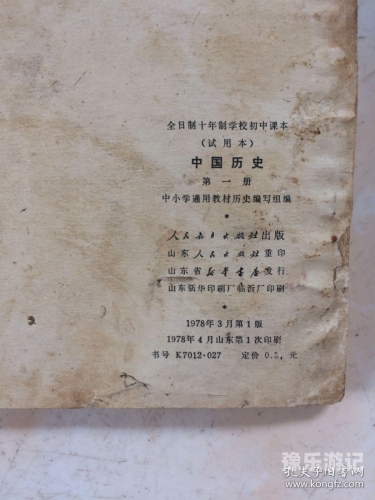 全日制十年制学校初中课本
(试用本)
中国历史
第一册
中小学通用教材历史编写组编
人民教育出版社出版
山东人民出版社重印
山东省新华书店发行
山东新华印刷厂临沂厂印刷
1978年3月第1版
1978年4月山东第1次印刷
书号 K7012·027 定价 0.3 元
豫乐游记
孔夫子旧书网
www.kongfz.com